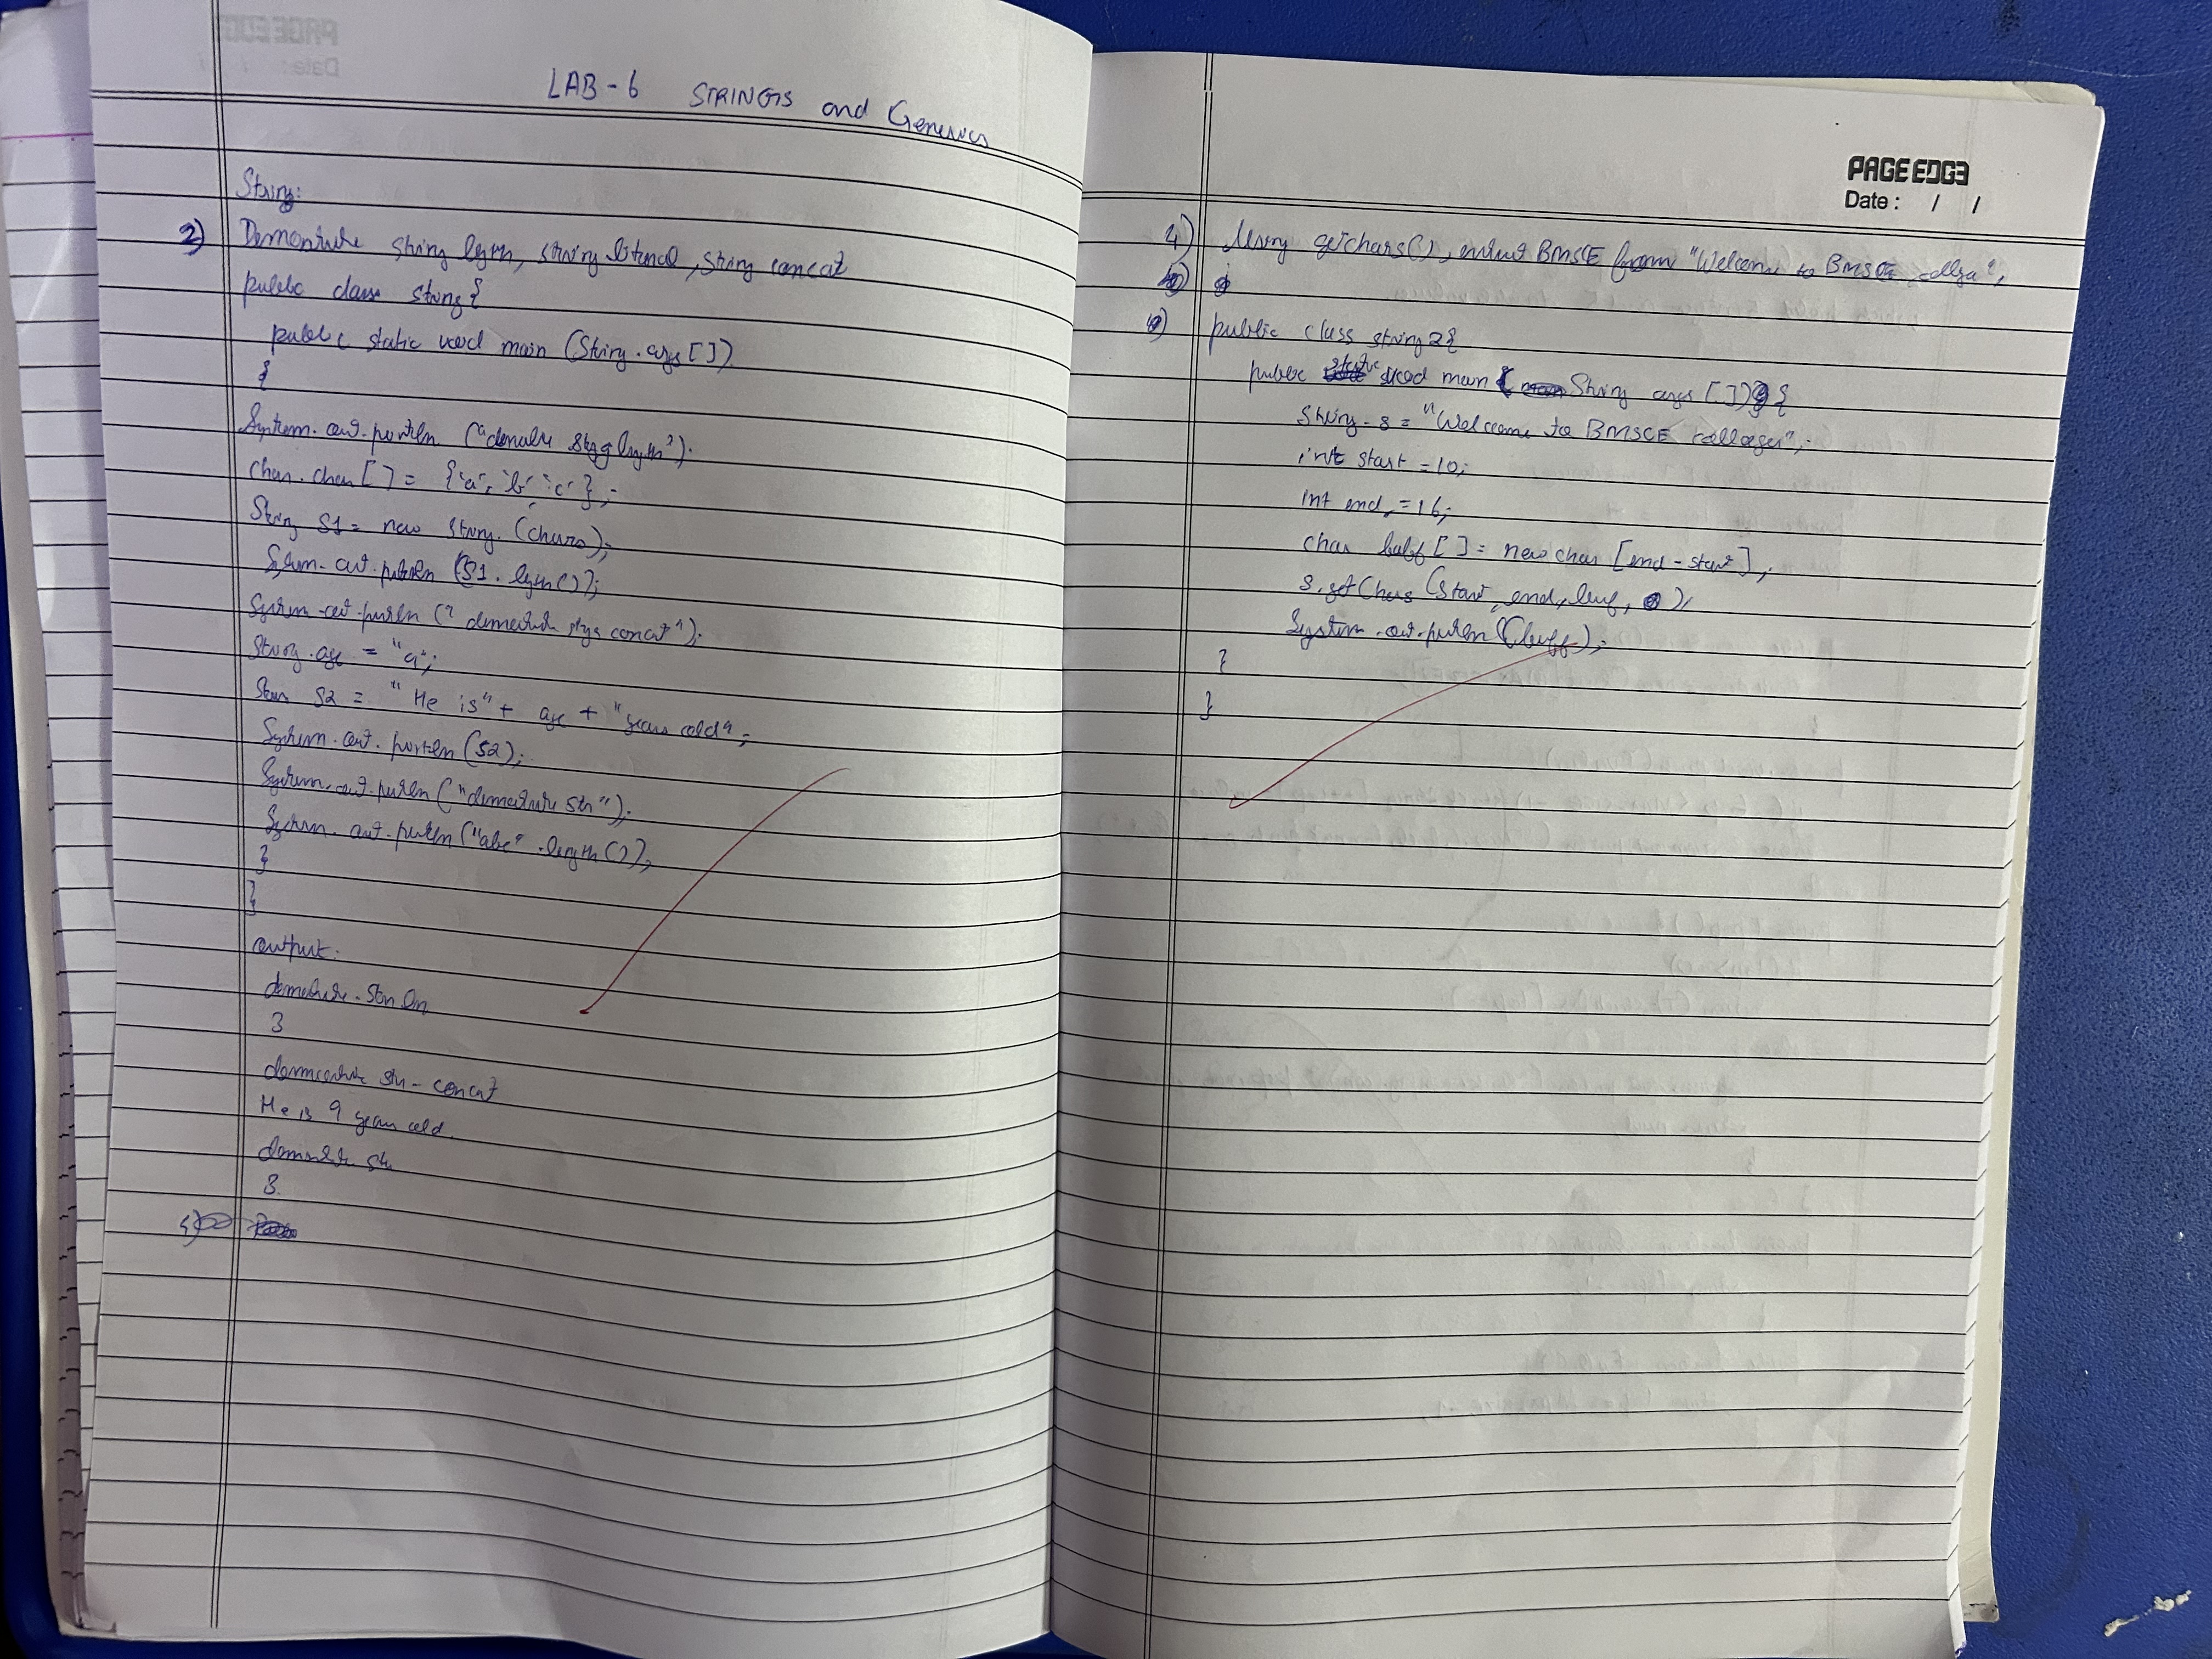 LAB - 6 STRINGS and Generics
String:
2) Demonstrate string length, string literal, string concat
public class string{
public static void main (String args[])
{
System.out.println ("demonstr string length");
char chars[] = {'a', 'b', 'c'};
String S1 = new string (chars);
System.out.println (S1.length());
System.out.println ("demonstrate concat");
String age = "9";
S2 = "He is" + age + "years old";
System.out.println (S2);
System.out.println ("demonstrate str");
System.out.println ("abc".length());
}
}
output:
3
demonstrate str - concat
He is 9 years old.
demonstrate str
PAGE EDGE
Date: / /
4) Using getchars(), extract BMSCE from "Welcome to BMSCE college",
public class string2{
public void main (String args[]){
String s = "Welcome to BMSCE colleges";
int start = 10;
int end = 16;
char buf[] = new char [end - start];
s.getChars (start, end, buf, 0);
System.out.println (buf);
}
}